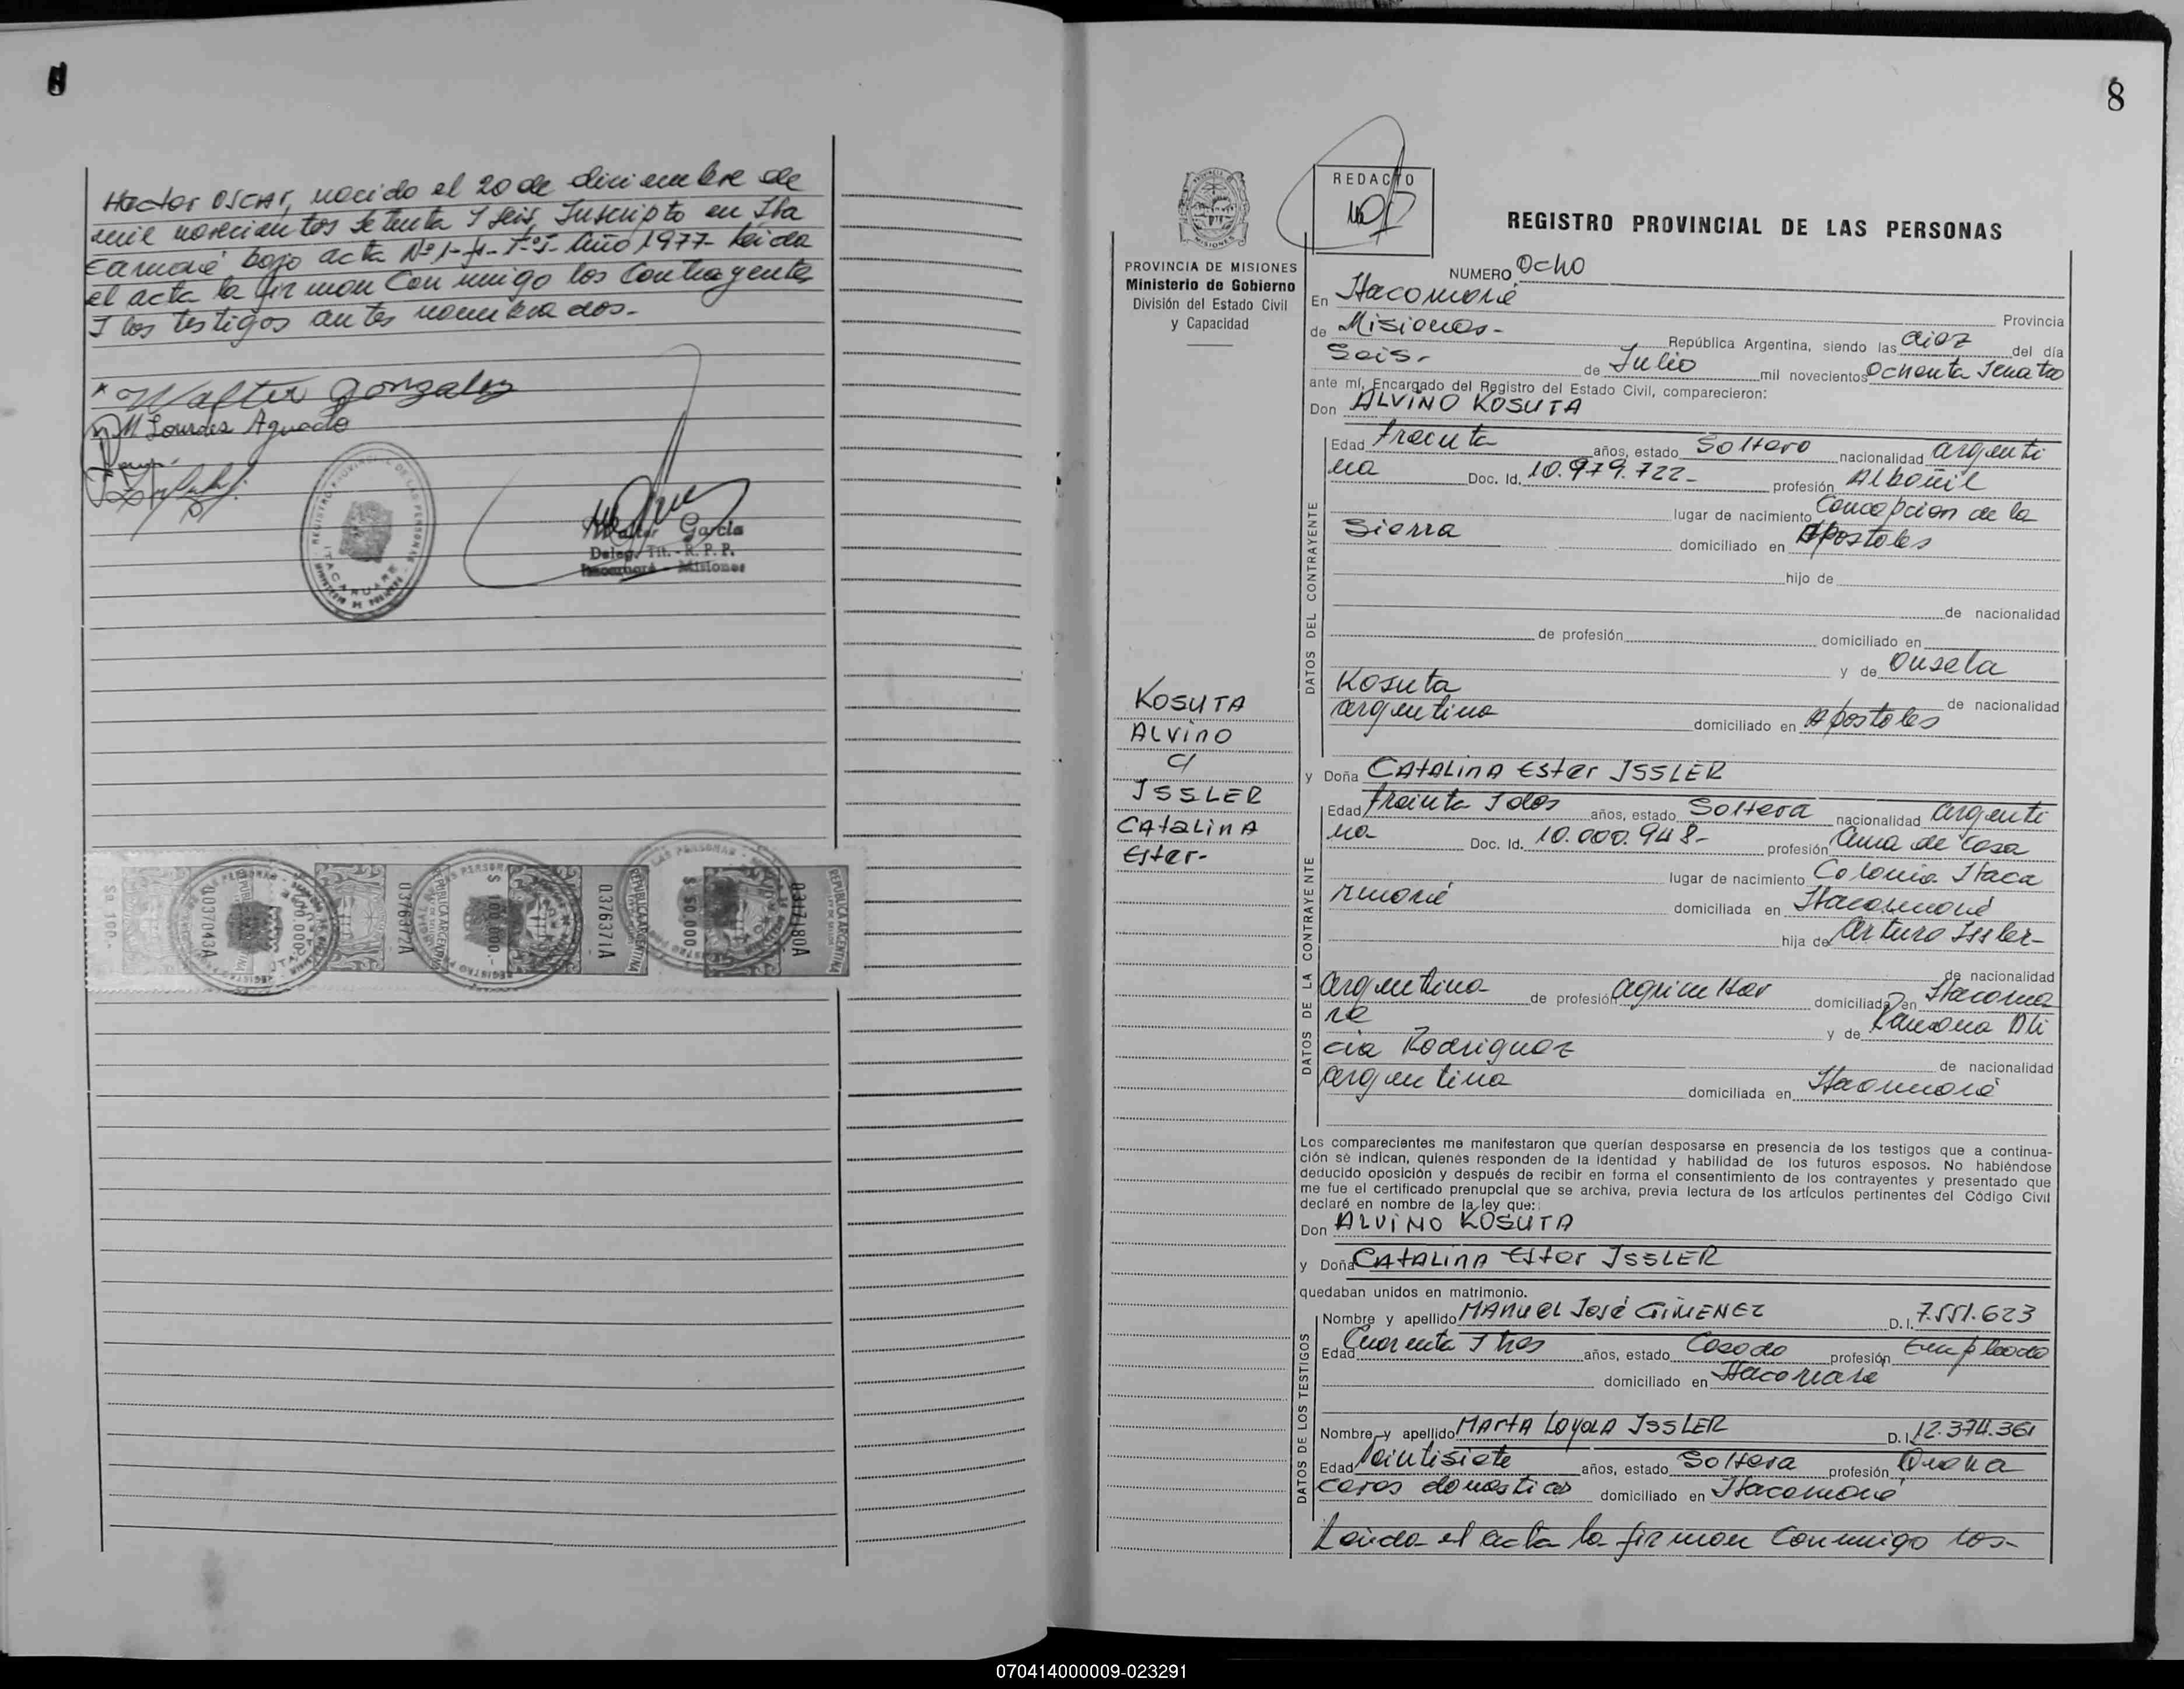 Hector OSCAR, nacido el 20 de diciembre de
mil novecientos setenta y seis, Inscripto en Ita
carnaré bajo acta Nº 1- fº1- Tº I- año 1977- Leida
el acta la firman Conmigo los Contrayentes
y los testigos antes nombrados.-
Walter Gonzalez
M Lourdes Aguado
REGISTRO PROVINCIAL DE LAS PERSONAS
ITACARUARE
García
Deleg. Tit. - R. P. P.
Itacaruaré - Misiones
$a 100.-
0037043A
037672A
REPUBLICA ARGENTINA
$ 100.000.-
037671A
REPUBLICA ARGENTINA
$ 50.000.-
0317180A
REPUBLICA ARGENTINA
8
PROVINCIA DE MISIONES
Ministerio de Gobierno
División del Estado Civil
y Capacidad
REDACTO
REGISTRO PROVINCIAL DE LAS PERSONAS
NUMERO Ocho
En Itacaruaré
Provincia
de Misiones- República Argentina, siendo las diez del día
Seis- de Julio mil novecientos Ochenta y cuatro
ante mí, Encargado del Registro del Estado Civil, comparecieron:
Don ALViNO KOSUTA
DATOS DEL CONTRAYENTE
Edad treinta años, estado Soltero nacionalidad argenti
na Doc. Id. 10.979.722- profesión Albañil
lugar de nacimiento Concepcion de la
Sierra domiciliado en Apostoles
hijo de
de nacionalidad
de profesión domiciliado en
y de Ousela
Kosuta de nacionalidad
argentina domiciliado en Apostoles
KOSUTA
ALVinO
c/
ISSLER
CAtaLinA
Ester-
y Doña CAtALinA Ester ISSLER
DATOS DE LA CONTRAYENTE
Edad treinta y dos años, estado Soltera nacionalidad argenti
na Doc. Id. 10.000.948- profesión Ama de Casa
lugar de nacimiento Colonia Itaca
ruaré domiciliada en Itacaruaré
hija de Arturo Issler-
de nacionalidad
argentino de profesión agricultor domiciliada en Itacarua
ré y de Ramona Ali
cia Rodriguez
de nacionalidad
argentina domiciliada en Itacaruaré
Los comparecientes me manifestaron que querían desposarse en presencia de los testigos que a continua-
ción se indican, quienes responden de la identidad y habilidad de los futuros esposos. No habiéndose
deducido oposición y después de recibir en forma el consentimiento de los contrayentes y presentado que
me fue el certificado prenupcial que se archiva, previa lectura de los artículos pertinentes del Código Civil
declaré en nombre de la ley que:
Don ALViNO KOSUTA
y Doña CAtALinA Ester ISSLER
quedaban unidos en matrimonio.
DATOS DE LOS TESTIGOS
Nombre y apellido MAnuEL José GiMENEZ D. I. 7.551.623
Edad Cuarenta y tres años, estado Casado profesión Empleado
domiciliado en Itacaruaré
Nombre y apellido MArtA LoyoLA ISSLER D. I. 12.374.361
Edad Veintisiete años, estado Soltera profesión Queha
ceres domesticos domiciliado en Itacaruaré
Leida el acta la firman Conmigo los-
070414000009-023291